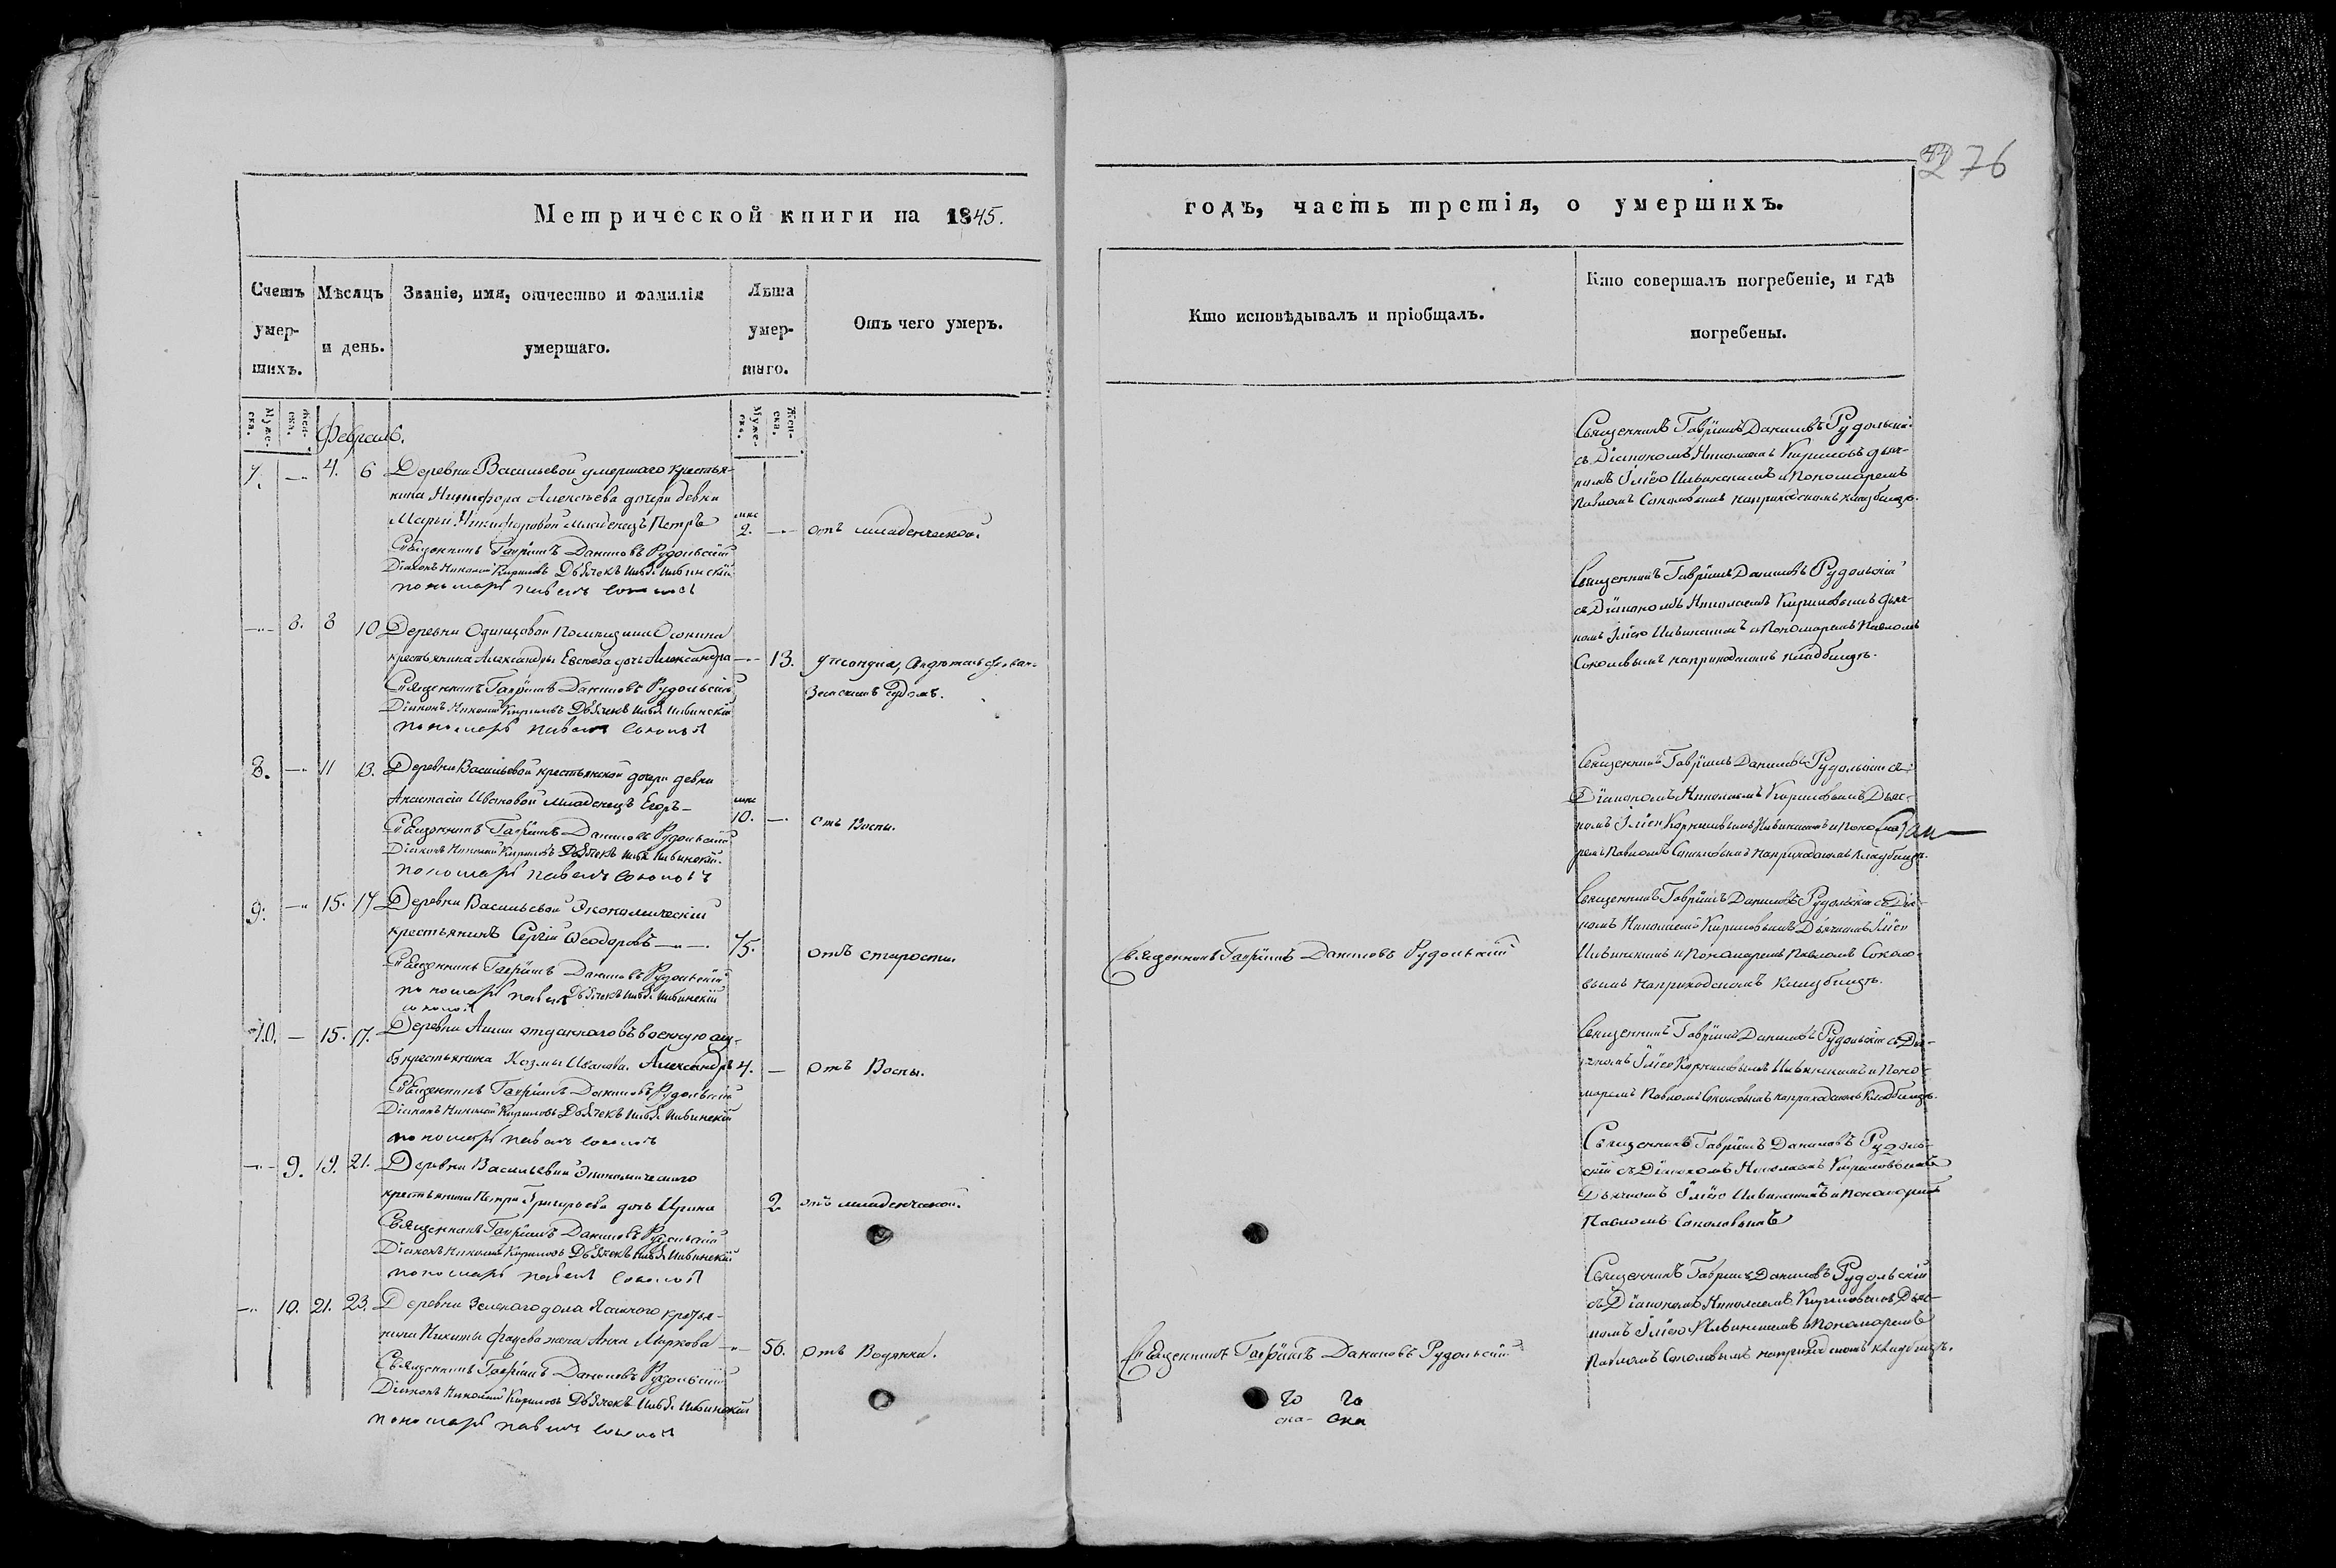 276
Метрической книги на 1845.
годъ, часть третія, о умершихъ.
Счетъ умер-шихъ.
Мѣсяцъ и день.
Званіе, имя, отчество и фамилія умершаго.
Лѣта умер-шаго.
Отъ чего умеръ.
Кто исповѣдывалъ и пріобщалъ.
Кто совершалъ погребеніе, и гдѣ погребены.
Муже-ска.
Жен-ска.
Муже-ска.
Жен-ска.
Февраль.
7. — 4. 6 Деревни Васильевой умершаго крестья-
нина Никифора Алексѣева дочери девки
Марьи Никифоровой младенецъ Петръ
2. — отъ младенческой.
Священникъ Гавріилъ Даниловъ Рудольскій
Діаконъ Николай Кириловъ Дьячекъ Илья Ильинскій
пономарь Павелъ
Священникъ Гавріилъ Даниловъ Рудольскій
съ Діакономъ Николаемъ Кириловымъ дьяч-
комъ Ильинскимъ и Пономаремъ
Павломъ Соколовымъ на приходскомъ кладбищѣ.
— 8. 8 10 Деревни Одинцовой
крестьянина Александра дочь Александра — 13.
Земскимъ Судомъ.
Священникъ Гавріилъ Даниловъ Рудольскій
Діаконъ Николай Кириловъ Дьячекъ Илья Ильинскій
пономарь Павелъ
Священникъ Гавріилъ Даниловъ Рудольскій
съ Діакономъ Николаемъ Кириловымъ дьяч-
комъ Ильинскимъ и Пономаремъ Павломъ
Соколовымъ на приходскомъ кладбищѣ.
8. — 11 13. Деревни Васильевой крестьянской дочери девки
Анастасіи Ивановой младенецъ Егоръ —
10. — отъ Воспы.
Священникъ Гавріилъ Даниловъ Рудольскій
Діаконъ Николай Кириловъ Дьячекъ Илья Ильинскій.
пономарь Павелъ
Священникъ Гавріилъ Даниловъ Рудольскій съ
Діакономъ Николаемъ Кириловымъ Дьяч-
комъ Ильинскимъ и Поно-
ремъ Павломъ Соколовымъ на приходскомъ кладбищѣ.
9. — 15. 17 Деревни Васильевой Экономическій
крестьянинъ Сергій Ѳеодоровъ — 75. отъ старости.
Священникъ Гавріилъ Даниловъ Рудольскій
пономарь Павелъ Дьячекъ Илья Ильинскій
Священникъ Гавріилъ Даниловъ Рудольскій
Священникъ Гавріилъ Даниловъ Рудольскій съ Діа-
комъ Николаемъ Кириловымъ Дьячкомъ
Ильинскимъ и Пономаремъ Павломъ Соколо-
вымъ на приходскомъ кладбищѣ.
10. — 15. 17. Деревни отданнаго въ военную
крестьянина Козмы Иванова Александръ 4. — отъ Воспы.
Священникъ Гавріилъ Даниловъ Рудольскій
Діаконъ Николай Кириловъ Дьячекъ Илья Ильинскій
пономарь Павелъ
Священникъ Гавріилъ Даниловъ Рудольскій съ
Ильинскимъ и Поно-
маремъ Павломъ Соколовымъ на приходскомъ кладбищѣ.
— 9. 19. 21. Деревни Васильевой Экономическаго
крестьянина Петра Григорьева дочь Ирина 2 отъ младенческой.
Священникъ Гавріилъ Даниловъ Рудольскій
Діаконъ Николай Кириловъ Дьячекъ Илья Ильинскій
пономарь Павелъ
Священникъ Гавріилъ Даниловъ Рудоль-
скій съ Діакономъ Николаемъ Кириловымъ
Дьячкомъ Ильинскимъ и Пономаремъ
Павломъ Соколовымъ
— 10. 21. 23. Деревни Зеленаго дола крестья-
нина Никиты жена Анна Маркова — 56. отъ Водянки.
Священникъ Гавріилъ Даниловъ Рудольскій
Діаконъ Николай Кириловъ Дьячекъ Илья Ильинскій
пономарь Павелъ
Священникъ Гавріилъ Даниловъ Рудольскій
Священникъ Гавріилъ Даниловъ Рудольскій
съ Діакономъ Николаемъ Кириловымъ Дьяч-
комъ Ильинскимъ и Пономаремъ
Павломъ Соколовымъ на приходскомъ кладбищѣ.